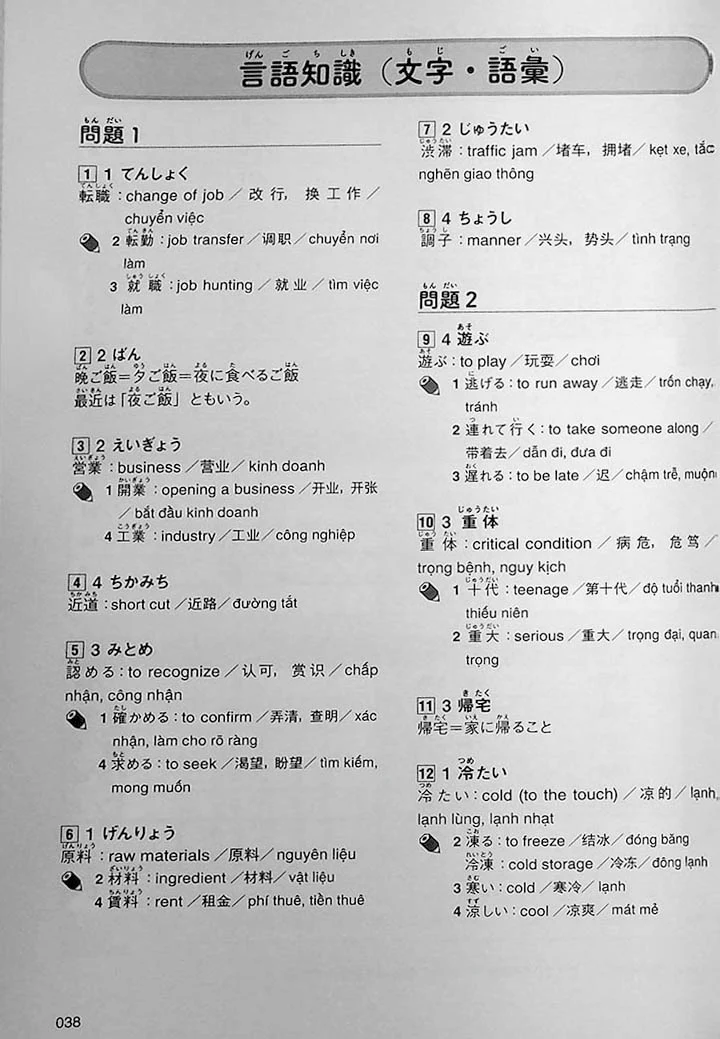 言語知識（文字・語彙）
問題1
1 1 てんしょく
転職：change of job／改行，换工作／
chuyển việc
2 転勤：job transfer／调职／chuyển nơi
làm
3 就職：job hunting／就业／tìm việc
làm
2 2 ばん
晩ご飯＝夕ご飯＝夜に食べるご飯
最近は「夜ご飯」ともいう。
3 2 えいぎょう
営業：business／营业／kinh doanh
1 開業：opening a business／开业，开张
／bắt đầu kinh doanh
4 工業：industry／工业／công nghiệp
4 4 ちかみち
近道：short cut／近路／đường tắt
5 3 みとめ
認める：to recognize／认可，赏识／chấp
nhận, công nhận
1 確かめる：to confirm／弄清，查明／xác
nhận, làm cho rõ ràng
4 求める：to seek／渴望，盼望／tìm kiếm,
mong muốn
6 1 げんりょう
原料：raw materials／原料／nguyên liệu
2 材料：ingredient／材料／vật liệu
4 賃料：rent／租金／phí thuê, tiền thuê
7 2 じゅうたい
渋滞：traffic jam／堵车，拥堵／kẹt xe, tắc
nghẽn giao thông
8 4 ちょうし
調子：manner／兴头，势头／tình trạng
問題2
9 4 遊ぶ
遊ぶ：to play／玩耍／chơi
1 逃げる：to run away／逃走／trốn chạy,
tránh
2 連れて行く：to take someone along／
带着去／dẫn đi, đưa đi
3 遅れる：to be late／迟／chậm trễ, muộn
10 3 重体
重体：critical condition／病危，危笃／
trọng bệnh, nguy kịch
1 十代：teenage／第十代／độ tuổi thanh
thiếu niên
2 重大：serious／重大／trọng đại, quan
trọng
11 3 帰宅
帰宅＝家に帰ること
12 1 冷たい
冷たい：cold (to the touch)／凉的／lạnh,
lạnh lùng, lạnh nhạt
2 凍る：to freeze／结冰／đóng băng
冷凍：cold storage／冷冻／đông lạnh
3 寒い：cold／寒冷／lạnh
4 涼しい：cool／凉爽／mát mẻ
038